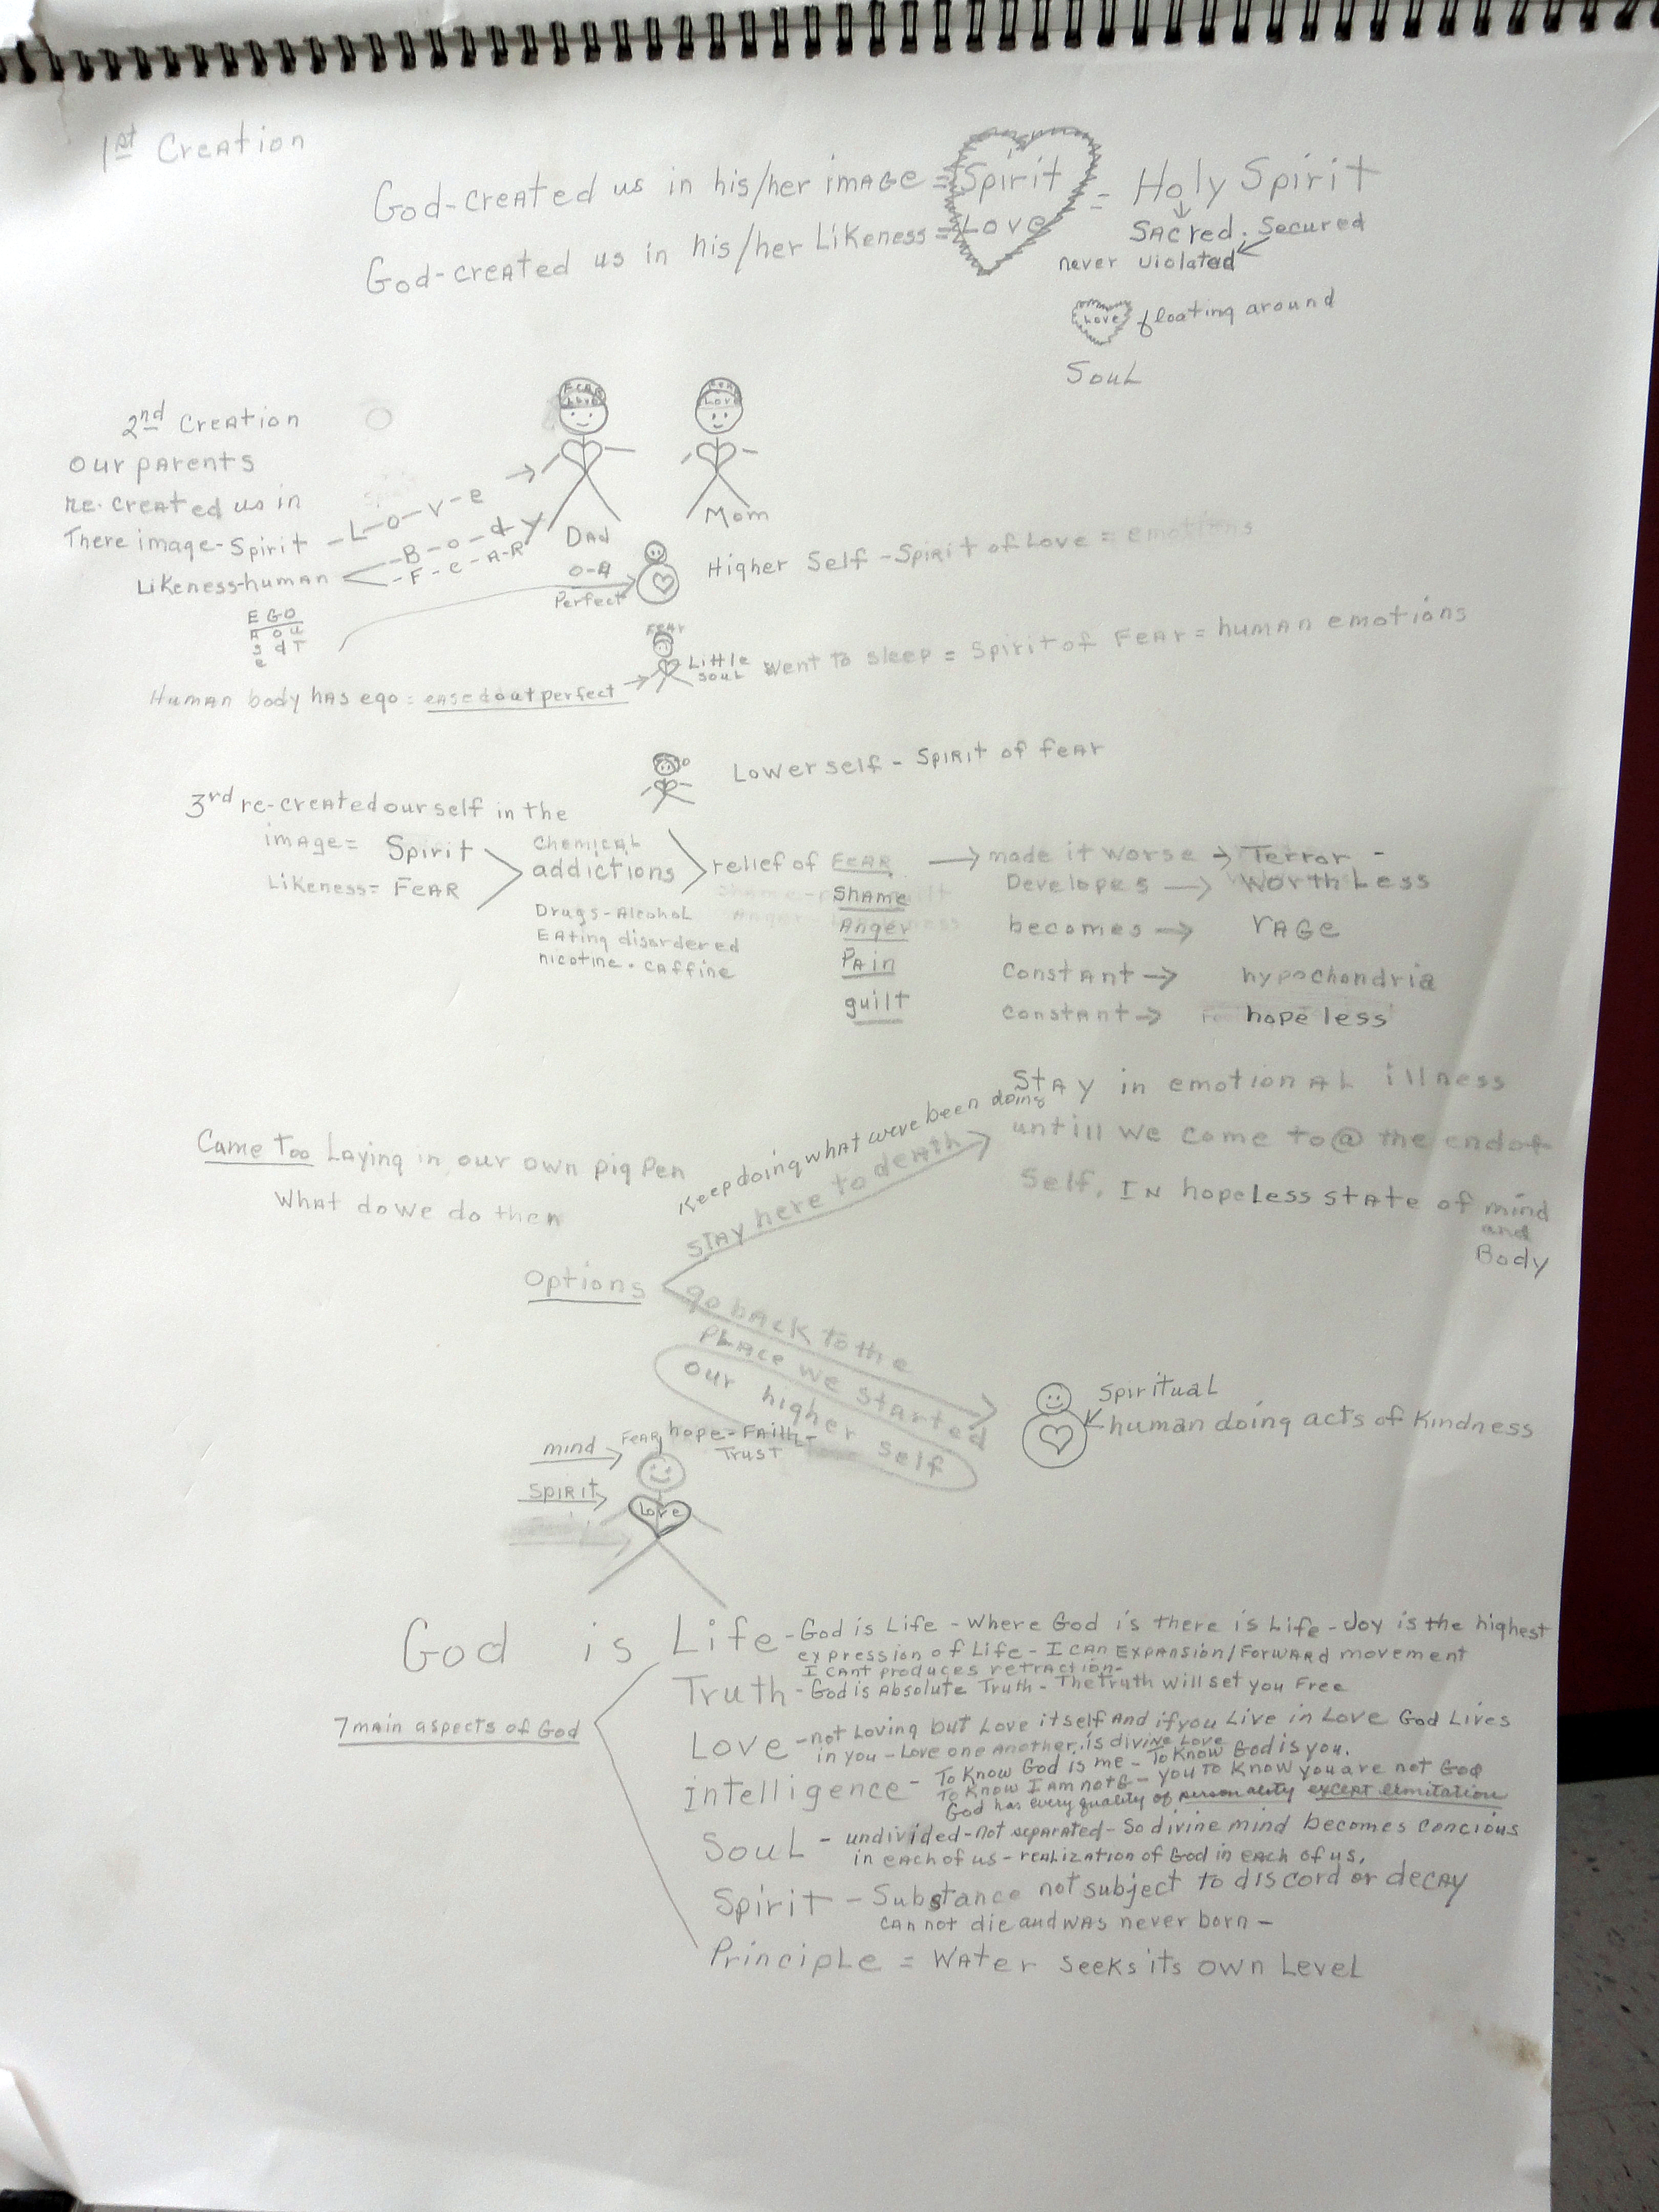 1st Creation
God-created us in his/her image = Spirit = Holy Spirit
God-created us in his/her Likeness = Love
Sacred. Secured
never violated
Love floating around
Soul
2nd Creation
our parents
re-created us in
There image-Spirit -L-o-v-e
Likeness-human
-B-o-d-y
-F-e-A-R
Fear
Love
Dad
Fear
Love
Mom
0-4
Perfect
Higher Self - Spirit of Love = emotions
EGO
A o u
s d T
e
Fear
Little
soul
went to sleep = Spirit of Fear = human emotions
Human body has ego = eased out perfect
Lower self - Spirit of fear
3rd re-created our self in the
image = Spirit
Likeness = Fear
Chemical
addictions
Drugs-Alcohol
Eating disordered
nicotine. caffine
relief of Fear → made it worse → Terror -
Shame Developes → Worth Less
Anger becomes → rage
Pain Constant → hypochondria
guilt constant → hopeless
Came Too Laying in our own pig pen
What do we do then
Options
Keep doing what were been doing
stay here to death
Stay in emotional illness
untill we come to @ the end of
self. In hopeless state of mind
and
Body
go back to the
place we started
our higher self
Spiritual
human doing acts of kindness
mind
Spirit
Fear hope-Faith-
Trust
Love
God is
7 main aspects of God
Life - God is Life - Where God is there is Life - Joy is the highest
expression of Life - I can Expansion/Forward movement
I cant produces retraction-
Truth - God is Absolute Truth - The Truth will set you Free
Love - not Loving but Love itself And if you Live in Love God Lives
in you - Love one Another, is divine Love
intelligence - To Know God is me - To Know God is you.
To Know I am not G - you to know you are not God
God has every quality of personality except limitation
Soul - undivided - not separated - So divine mind becomes concious
in each of us - realization of God in each of us.
Spirit - Substance not subject to discord or decay
can not die and was never born -
Principle = Water seeks its own Level